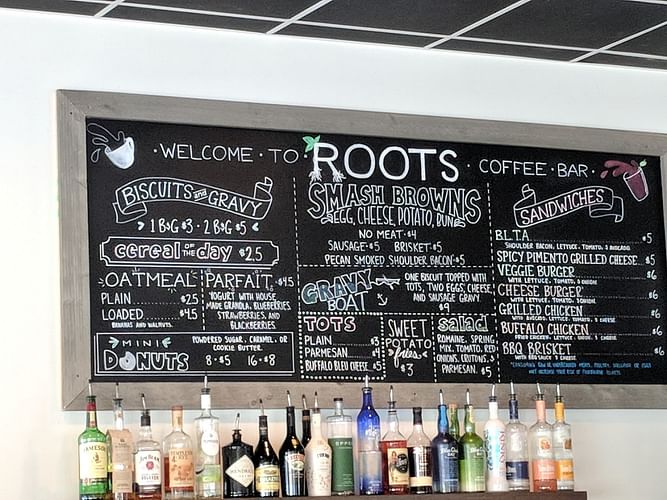 · WELCOME · TO · ROOTS · COFFEE · BAR ·
BISCUITS and GRAVY
1 B&G $3 · 2 B&G $5
cereal OF THE day $2.5
OATMEAL
PLAIN $2.5
LOADED $4.5
BANANAS AND WALNUTS
PARFAIT $4.5
YOGURT WITH HOUSE
MADE GRANOLA, BLUEBERRIES,
STRAWBERRIES, AND
BLACKBERRIES
MINI
DONUTS
POWDERED SUGAR, CARAMEL, OR
COOKIE BUTTER
8 · $5 16 · $8
SMASH BROWNS
EGG, CHEESE, POTATO, BUN
NO MEAT · $4
SAUSAGE · $5 BRISKET · $5
PECAN SMOKED SHOULDER BACON · $5
GRAVY
BOAT
ONE BISCUIT TOPPED WITH
TOTS, TWO EGGS, CHEESE,
AND SAUSAGE GRAVY
$9
TOTS
PLAIN $3
PARMESAN $4
BUFFALO BLEU CHEESE $5
SWEET
POTATO
fries
$3
salad
ROMAINE, SPRING
MIX, TOMATO, RED
ONIONS, CRUTONS, &
PARMESAN $5
SANDWICHES
B.L.T.A. $5
SHOULDER BACON, LETTUCE, TOMATO, & AVOCADO
SPICY PIMENTO GRILLED CHEESE $5
VEGGIE BURGER $6
WITH LETTUCE, TOMATO, & ONION
CHEESE BURGER $6
WITH LETTUCE, TOMATO, & ONION
GRILLED CHICKEN $6
WITH AVOCADO, LETTUCE, TOMATO, & CHEESE
BUFFALO CHICKEN $6
FRIED CHICKEN, LETTUCE, ONION, & CHEESE
BBQ BRISKET $6
WITH BBQ SAUCE & CHEESE
*CONSUMING RAW OR UNDERCOOKED MEATS, POULTRY, SHELLFISH OR EGGS
MAY INCREASE YOUR RISK OF FOODBORNE ILLNESS
JAMESON
JIM BEAM
HENDRICK'S